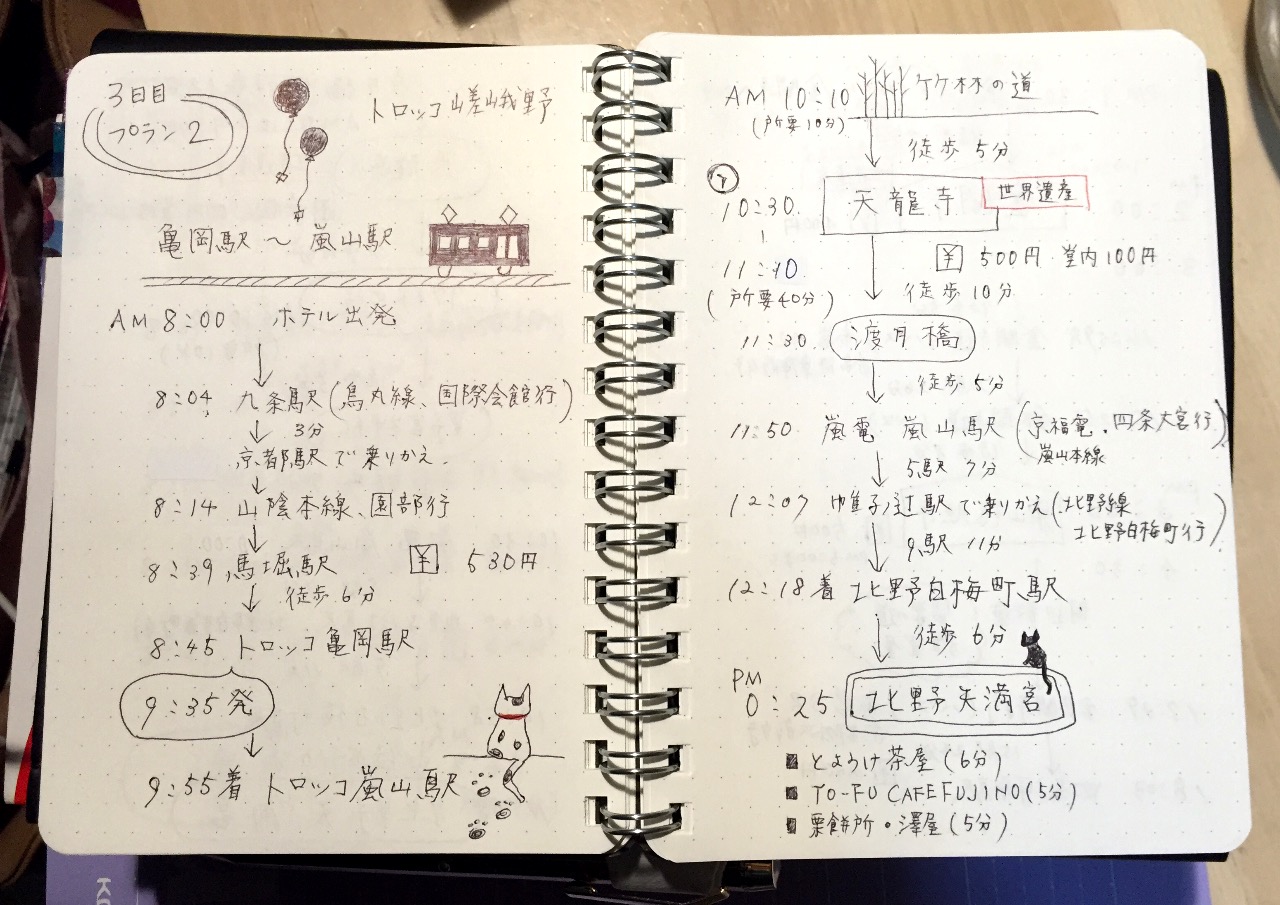 3日目
プラン2
トロッコ嵯峨野
亀岡駅 〜 嵐山駅
AM 8:00 ホテル出発
8:04 九条駅(烏丸線、国際会館行)
3分
京都駅で乗りかえ.
8:14 山陰本線、園部行
8:39 馬堀駅 ¥ 530円
徒歩 6分
8:45 トロッコ亀岡駅
9:35発
9:55着 トロッコ嵐山駅
AM 10:10 竹林の道
(所要10分)
徒歩 5分
10:30. 天龍寺 世界遺産
11:10 ¥ 500円 堂内100円
(所要40分) 徒歩 10分
11:30. 渡月橋
徒歩 5分
11:50 嵐電 嵐山駅(京福電.四条大宮行)
嵐山本線
5駅 7分
12:07 帷子ノ辻駅で乗りかえ(北野線
北野白梅町行)
9駅 11分
12:18着 北野白梅町駅
徒歩 6分
PM
0:25 北野天満宮
■ とようけ茶屋(6分)
■ TO-FU CAFE FUJINO(5分)
■ 粟餅所・澤屋(5分)